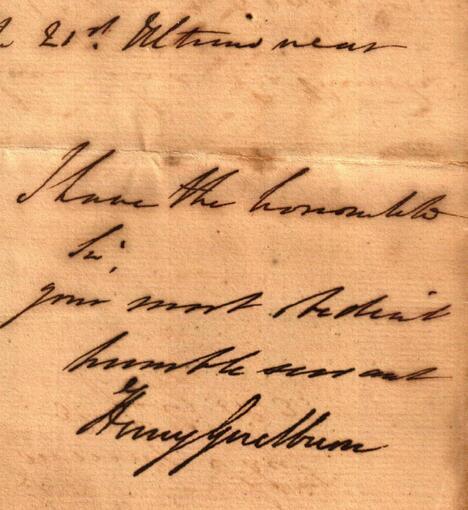 21st. Ultimo near
I have the honor to be
Sir,
your most obedient
humble servant
Henry Goulburn